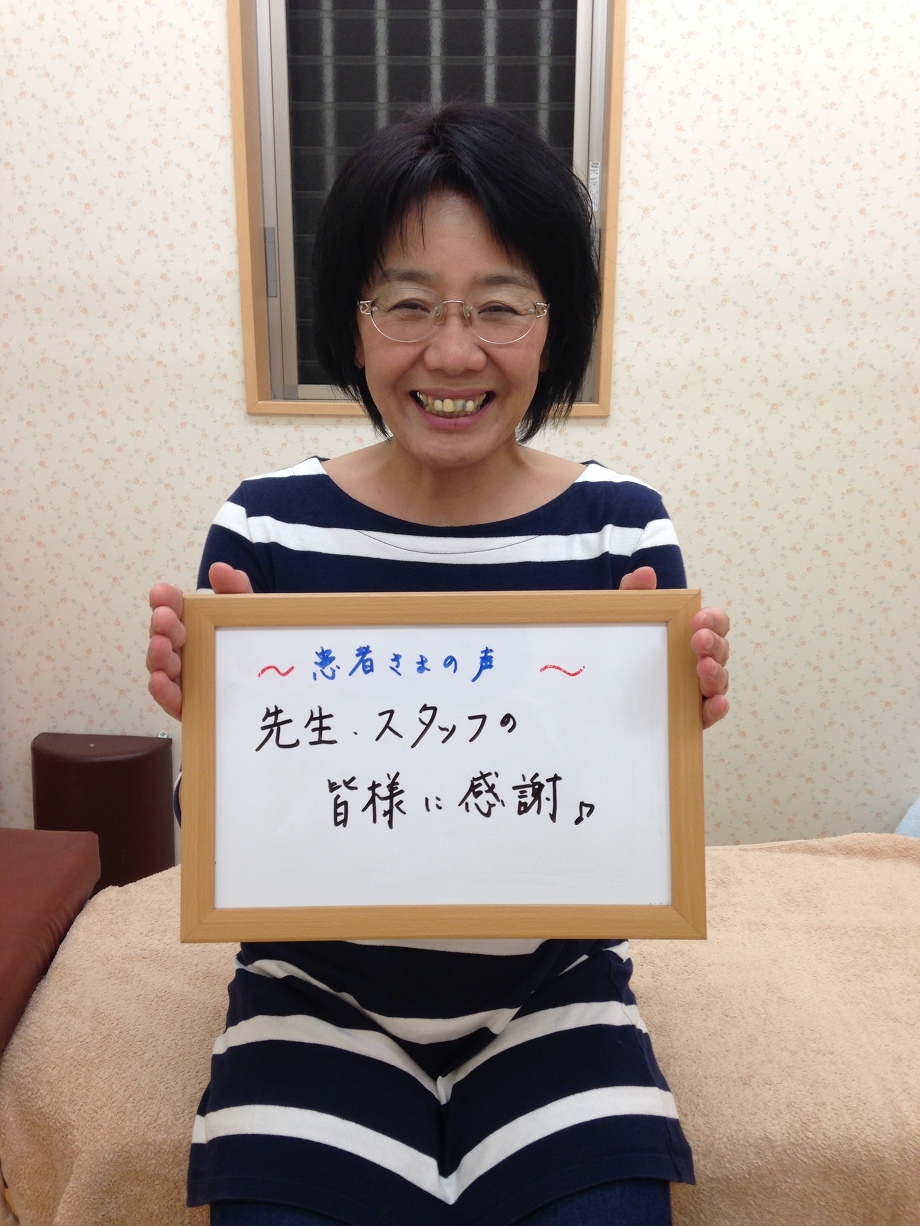 ～患者さまの声～
先生、スタッフの
皆様に感謝♪